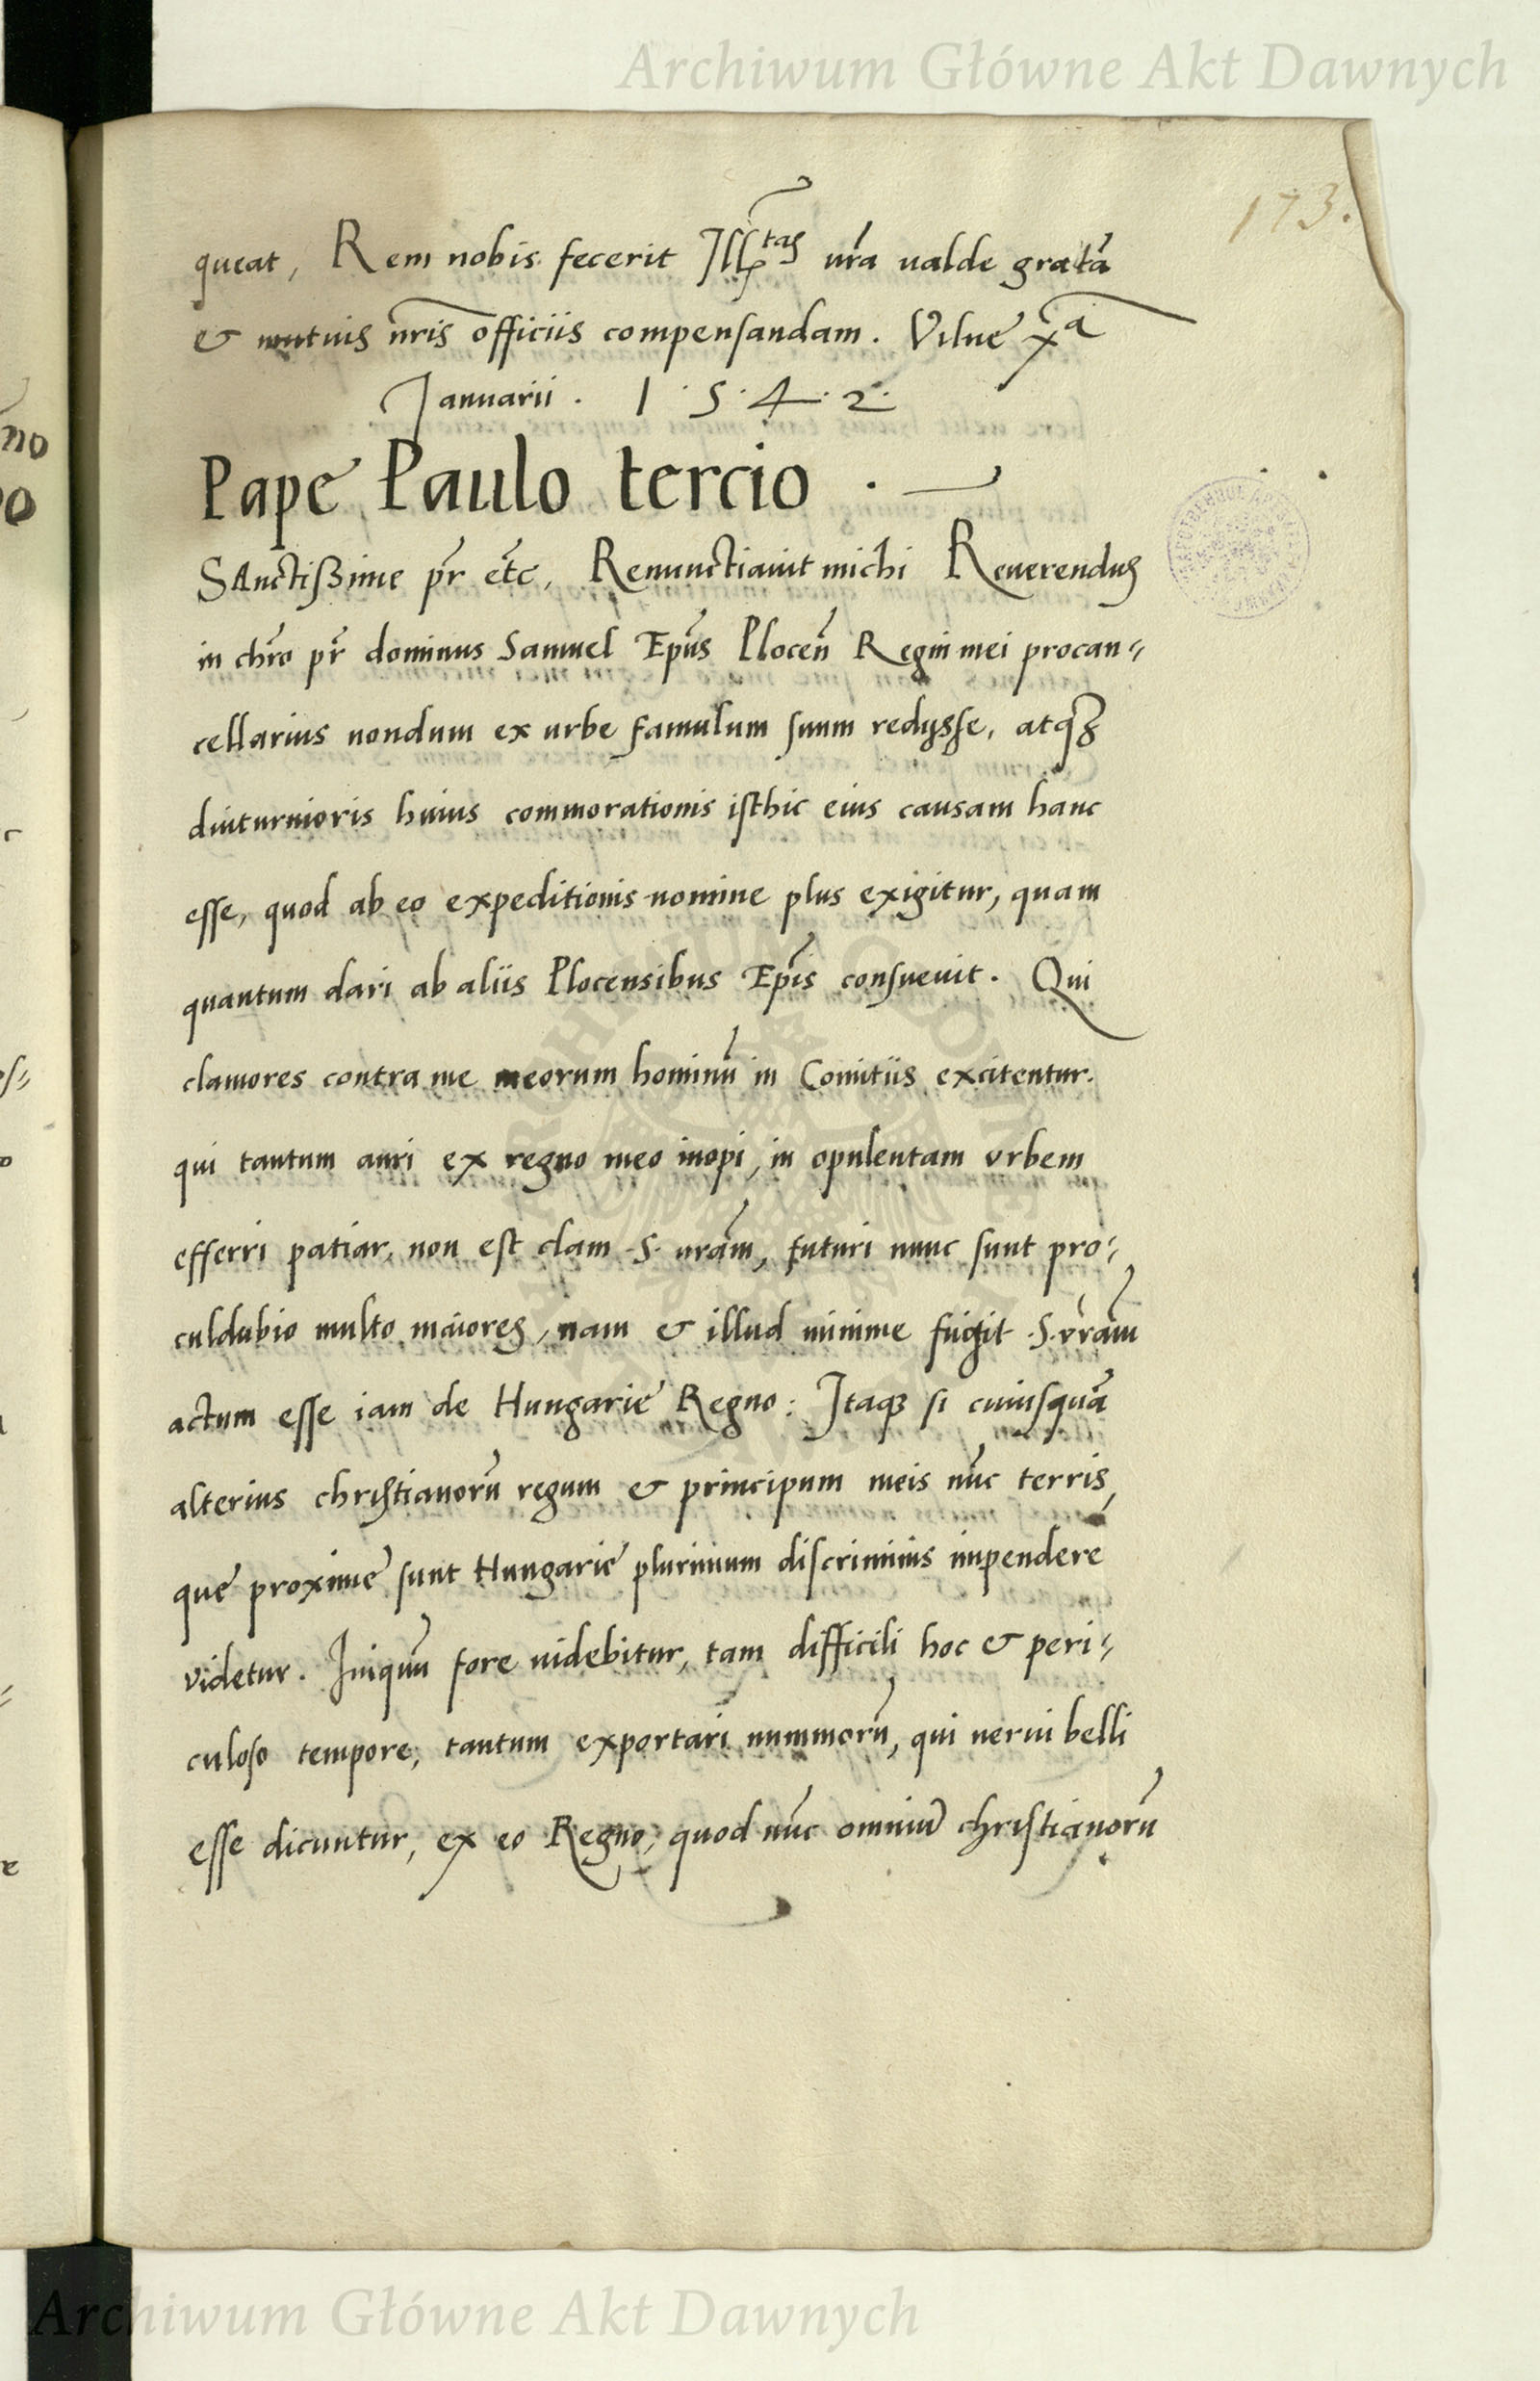 Archiwum Główne Akt Dawnych
173.
queat, Rem nobis fecerit Ill^tas vrã ualde gratã
& mutuis nris officiis compensandam. Vilnę x^a
Januarii. 1.5.4.2.
Papę Paulo tercio.
Sanctissime pr̃ etc, Renunctiauit michi Reuerendus
in chrõ pr̃ dominus Samuel Epũs Plocen̄ Regni mei procan=
cellarius nondum ex urbe famulum suum redysse, atq₃
diuturnioris huius commorationis isthic eius causam hanc
esse, quod ab eo expeditionis nomine plus exigitur, quam
quantum dari ab aliis Plocensibus Ep̃is consueuit. Qui
clamores contra me meorum hominũ in Comitiis excitentur.
qui tantum auri ex regno meo inopi, in opulentam vrbem
efferri patiar, non est clam .S. vrãm, futuri nunc sunt pro=
culdubio multo maiores, nam & illud minime fugit .S. vrãm
actum esse iam de Hungarię Regno: Itaq₃ si cuiusquã
alterius christianorũ regum & principum meis nũc terris,
quę proximę sunt Hungarię plurimum discriminis impendere
videtur. Iniquũ fore uidebitur, tam difficili hoc & peri=
culoso tempore, tantum exportari nummorũ, qui nerui belli
esse dicuntur, ex eo Regno, quod nũc omniũ christianorũ
Archiwum Główne Akt Dawnych